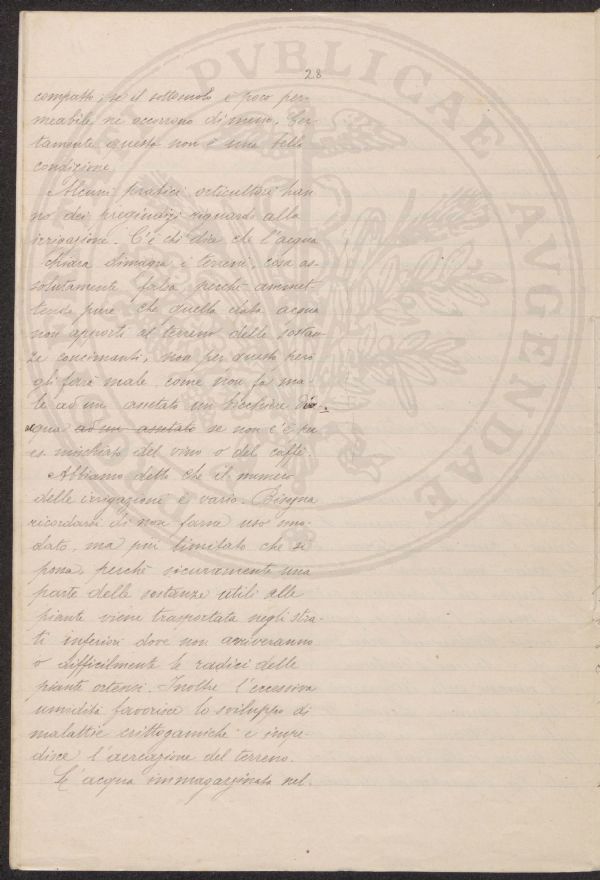 28
compatto; se il sottosuolo è poco per-
meabile ne occorrono di meno. Cer-
tamente questo non è una bella
condizione.
Alcuni pratici orticultori han-
no dei pregiudizi riguardo alla
irrigazione. C'è chi dice che l'acqua
chiara dimagra i terreni, cosa as-
solutamente falsa perchè ammet-
tendo pure che quella data acqua
non apporti al terreno delle sostan-
ze concimanti, non per questo però
gli farà male, come non fa ma-
le ad un assetato un bicchiere d'
acqua ad un assetato se non c'è pu
re mischiato del vino o del caffè.
Abbiamo detto che il numero
delle irrigazione è vario. Bisogna
ricordarsi di non farne uso smo-
dato, ma più limitato che si
possa perchè sicuramente una
parte delle sostanze utili alle
piante viene trasportata negli stra-
ti inferiori dove non arriveranno
o difficilmente le radici delle
piante ortensi. Inoltre l'eccessiva
umidità favorisce lo sviluppo di
malattie crittogamiche e impe-
disce l'aereazione del terreno.
L'acqua immagazzinata nel-
PVBLICAE
AVGENDAE